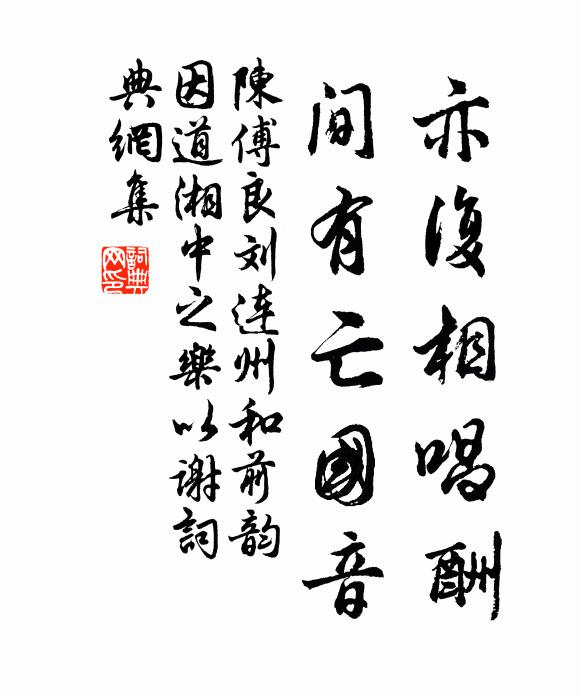 亦復相唱酬
間有亡國音
陳傅良刘連州和前韵
因道湘中之樂以谢詞
典網集
詞典
网印